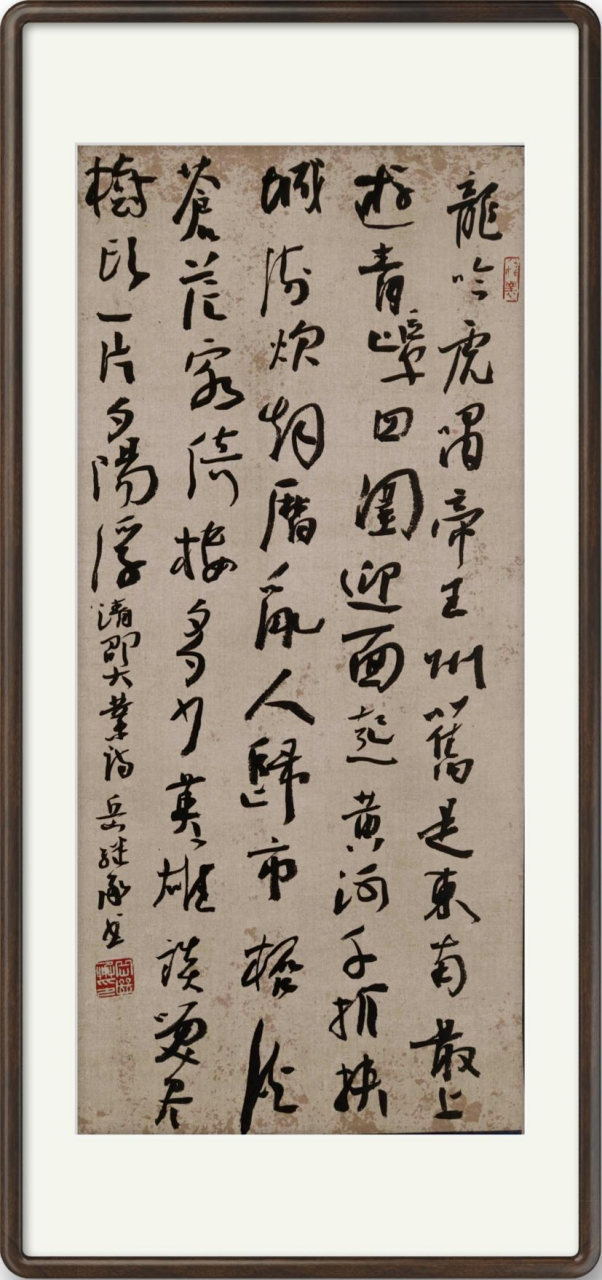 龍吟虎嘯帝王州舊是東南最上
遊青嶂四圍迎面起黃河千折挾
城流炊烟曆亂人歸市桮酒
蒼茫客倚樓多少英雄談笑尽
樹頭一片夕陽浮 清邵大業詩 岳继承书